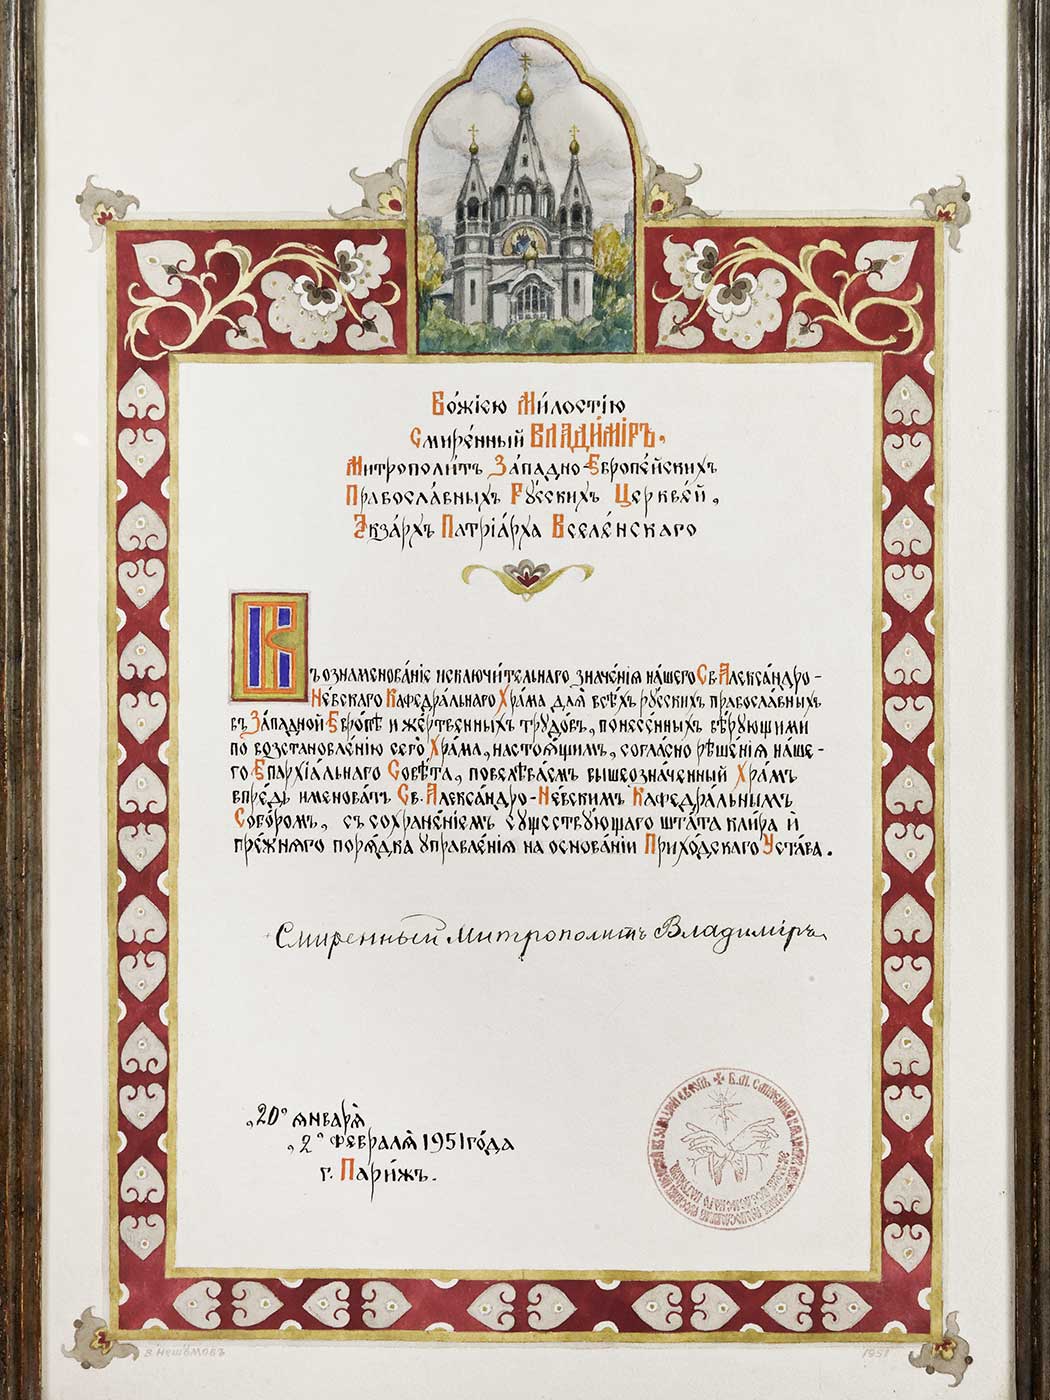 Бо́жiєю Ми́лостiю
Смирє́нный ВЛАДИ́МIРЪ,
Митрополи́тъ За́падно-Европе́йскихъ
Правосла́вныхъ Ру́сскихъ Церкве́й,
Экза́рхъ Патрiа́рха Вселе́нскаго
Въ ознаменова́нiе исключи́тельнаго значе́нiя на́шего Св. Алекса́ндро-
Не́вскаго Кафедра́льнаго Хра́ма для всѣ́хъ ру́сскихъ правосла́вныхъ
въ За́падной Евро́пѣ и же́ртвенныхъ трудо́въ, понесе́нныхъ вѣ́рующими
по возстановле́нiю сего́ Хра́ма, настоя́щимъ, согла́сно рѣше́нiя на́ше-
го Епархiа́льнаго Совѣ́та, повелѣва́емъ вышеозна́ченный Храмъ
впредь именова́ть Св. Алекса́ндро-Не́вскимъ Кафедра́льнымъ
Собо́ромъ, съ сохране́нiемъ существу́ющаго шта́та кли́ра и
пре́жняго поря́дка управле́нiя на основа́нiи Прихо́дскаго Уста́ва.
Смиренный Митрополитъ Владимiръ
„20“ января́
„2“ февраля́ 1951 го́да
г. Пари́жъ.
1951